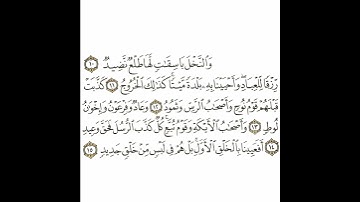 وَٱلنَّخْلَ بَاسِقَٰتٍ لَّهَا طَلْعٌ نَّضِيدٌ ١٠
رِّزْقًا لِّلْعِبَادِ وَأَحْيَيْنَا بِهِۦ بَلْدَةً مَّيْتًا كَذَٰلِكَ ٱلْخُرُوجُ ١١ كَذَّبَتْ
قَبْلَهُمْ قَوْمُ نُوحٍ وَأَصْحَٰبُ ٱلرَّسِّ وَثَمُودُ ١٢ وَعَادٌ وَفِرْعَوْنُ وَإِخْوَٰنُ
لُوطٍ ١٣ وَأَصْحَٰبُ ٱلْأَيْكَةِ وَقَوْمُ تُبَّعٍ كُلٌّ كَذَّبَ ٱلرُّسُلَ فَحَقَّ وَعِيدِ
١٤ أَفَعَيِينَا بِٱلْخَلْقِ ٱلْأَوَّلِ بَلْ هُمْ فِى لَبْسٍ مِّنْ خَلْقٍ جَدِيدٍ ١٥